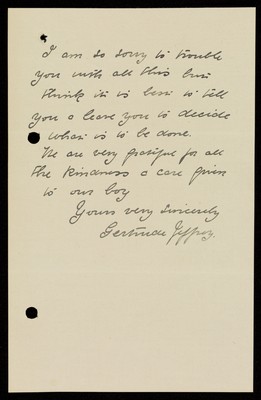 I am so sorry to trouble
you with all this but
think it is best to tell
you & leave you to decide
what is to be done.
We are very grateful for all
the kindness & care given
to our boy
Yours very sincerely
Gertrude